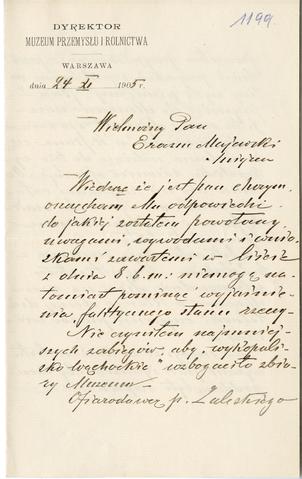 1199
DYREKTOR
MUZEUM PRZEMYSŁU I ROLNICTWA
WARSZAWA
dnia 24 XI 1905 r.
Wielmożny Pan
Erazm Majewski
w miejscu
Wiedząc że jest pan chorym,
oszczędzam Mu odpowiedzi
do jakiej zostałem powołany
uwagami, wywodami i wnio-
skami zawartemi w liście
z dnia 8. b.m.: niemogę na-
tomiast pominąć wyjaśnie-
nia faktycznego stanu rzeczy.
Nie czyniłem najmniej-
szych zabiegów, aby „wykopalis-
ko wąchockie” wzbogaciło zbio-
ry Muzeum.
Ofiarodawca p. Zaleskiego